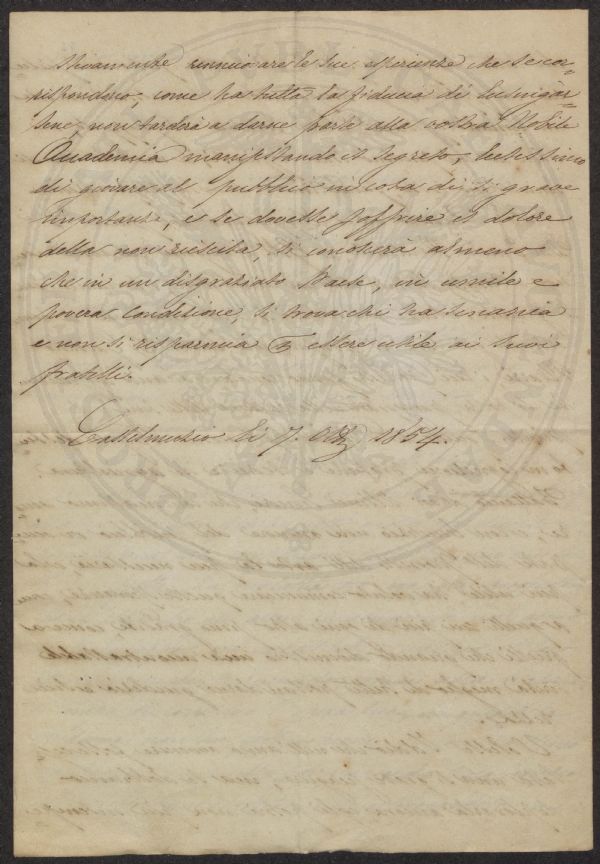 rinnovare le sue esperienze che se cor-
rispondono, come ha tutta la fiducia di lusingar-
sene, non tarderà a darne parte alla vostra Nobile
Accademia manifestando il segreto, lietissimo
di giovare al pubblico in cosa di sì grave
importanza, e se dovesse soffrire il dolore
della non riescita, si conoscerà almeno
che in un disgraziato Paese, in umile e
povera Condizione, si trova chi ha smania
e non si risparmia ad essere utile ai suoi
fratelli.
Castelmuzio li 7. 1854.